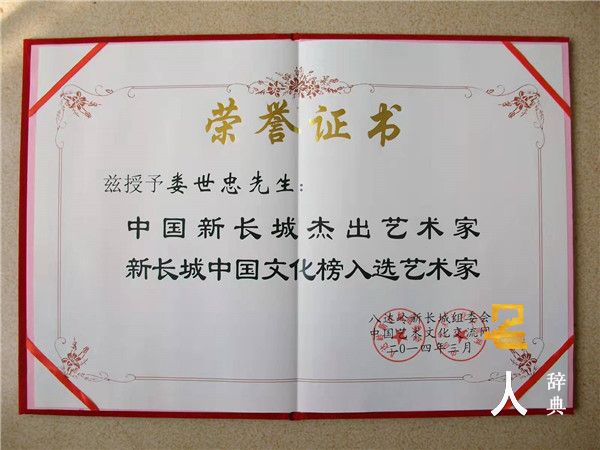 荣誉证书
兹授予娄世忠先生：
中国新长城杰出艺术家
新长城中国文化榜入选艺术家
八达岭新长城组委会
中国艺术文化交流网
二〇一四年三月
人
辞典